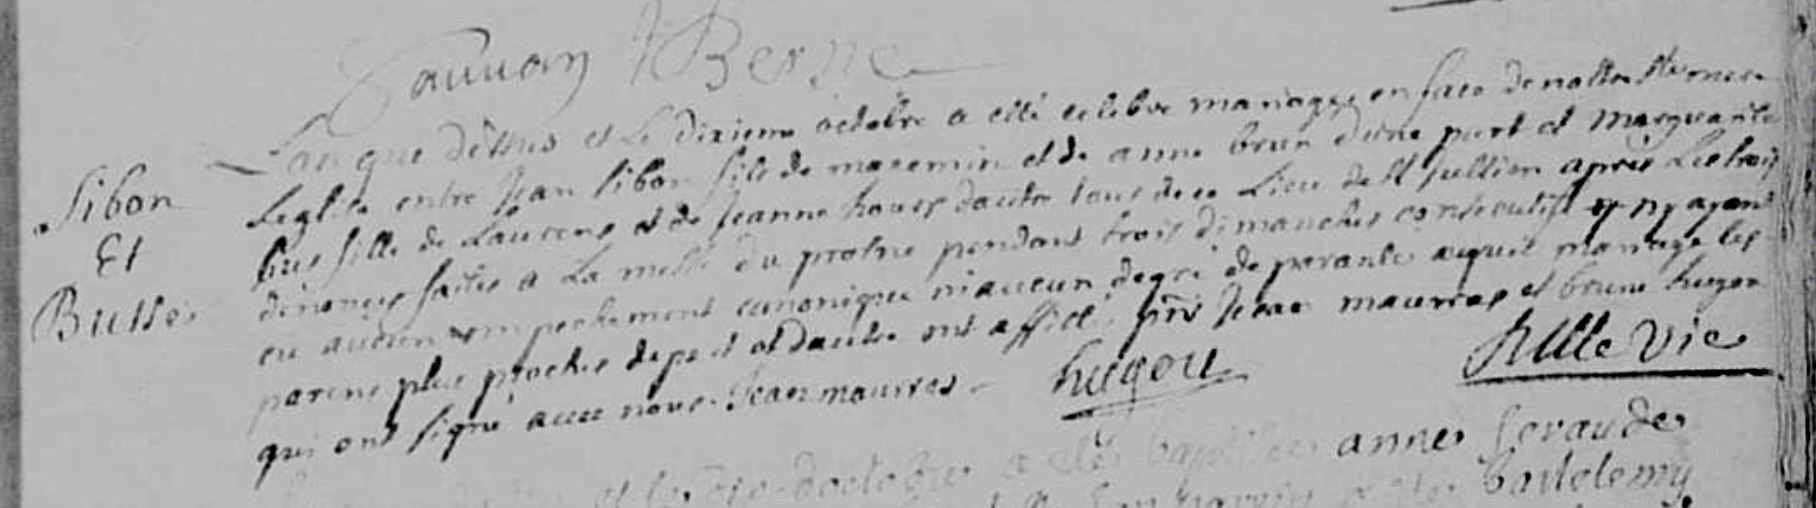 Sauvan Berne
Sibon
Et
Busse
Lan que dessus et le dixieme octobre a esté celebre mariage en face de nostre Ste mere
Leglise entre Jean Sibon fils de maxemin et de anne brun dune part et marguerite
fille de Laurens et de Jeanne dautre tous de ce Lieu de St Jullien apres les trois
denonces faites a La messe du prosne pendant trois dimanches consecutifs et ny ayant
eu aucun empechement canonique ni aucun degré de parante auquel mariage les
parens plus proches de part et dautre ont assisté pnt Jean maurras et brune hugou
qui ont signé avec nous. Jean maurras hugou vic
et le d'octobre a esté baptisée anne
bartelemy